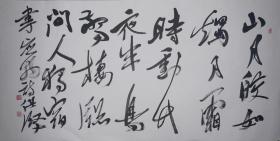 山月皎如
燭風霜
時動竹
夜半鳥
驚栖窗
間人獨宿
韋應物詩